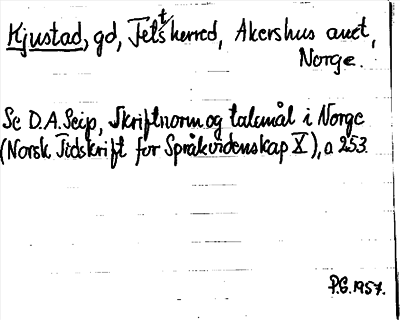 Kjustad, gd, Fetsherred, Akershus amt,
Norge.
Se D.A. Seip, Skriftnorm og talemål i Norge
(Norsk Tidskrift for Språkvidenskap X), s 253.
P.G. 1957.